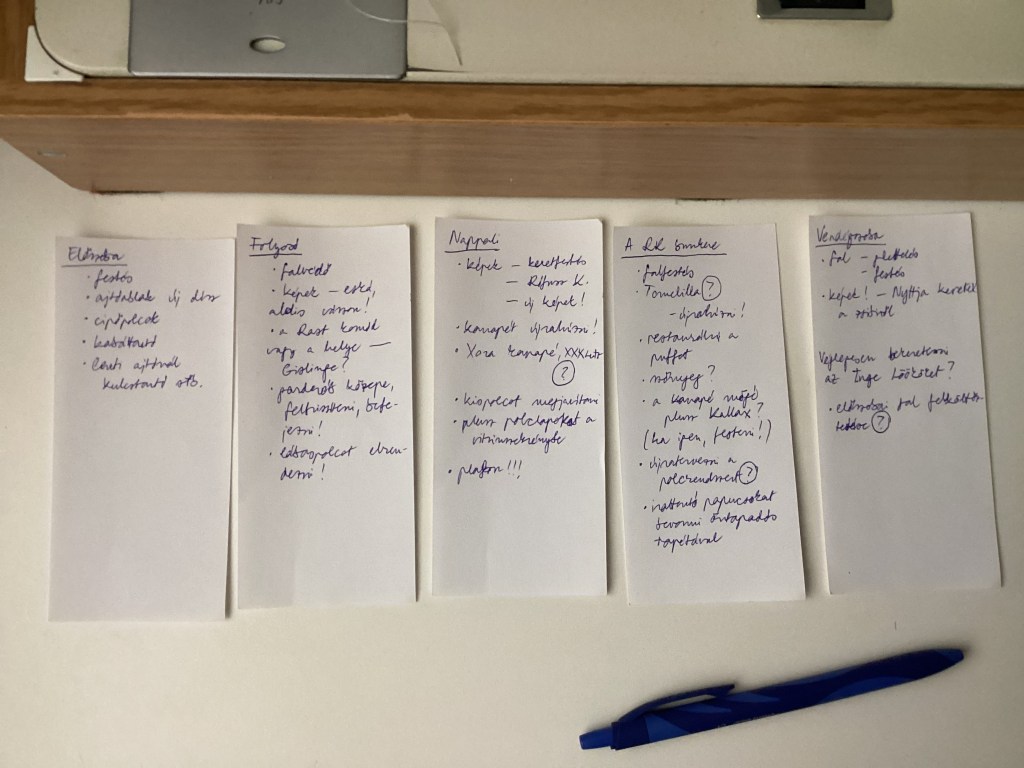 Előszoba
· festés
· ajtóablak új dísz
· cipőpolcok
· kabáttartó
· lenti ajtónál
kulcstartó stb.
Folyosó
· falvédő
· képek – eskü,
aldis vissza!
· a Rast komód
vagy a helye —
Gislinge?
közepe,
felfrissíteni, befe-
jezni!
elren-
dezni!
Nappali
· képek – keretfestés
– Rötuss K.
– új képek!
· kanapét újrahúzni!
· Xora kanapé, XXXLutz
?
· kispolcot megjavítani
· plusz polclapokat a
vitrinszekrénybe
· plafon!!!
A RR bunkere
· falfestés
· Tomelilla ?
– újrahúzni!
· restaurálni a
puffot
· szőnyeg?
· a kanapé mögé
plusz Kallax?
(ha igen, festeni!)
· újratervezni a
polcrendszert ?
· irattartó papucsokat
bevonni öntapadós
tapétával
Vendégszoba
· fal – glettelés
– festés
· képek! – Nyttja keretek
a
Véglegesen bekeretezni
az Inge Löökötet?
· előszobai fal
?